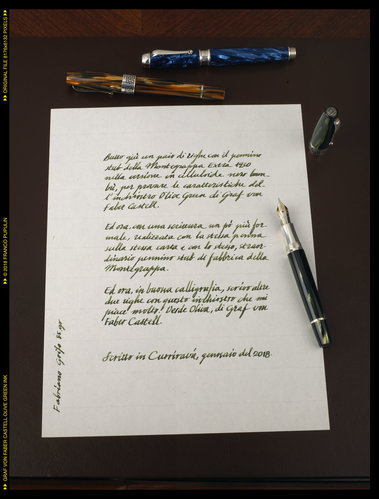 Butto giù un paio di righe con il pennino
stub della Montegrappa Extra 1930
nella versione in celluloide nero bam-
bù, per provare le caratteristiche del-
l'inchiostro Olive Green di Graf von
Faber Castell.
Ed ora, con una scrittura un pò più for-
male, realizzata con la stessa penna
sulla stessa carta e con lo stesso, straor-
dinario pennino stub di fabbrica della
Montegrappa.
Ed ora, in buona calligrafia, scrivo altre
due righe con questo inchiostro che mi
piace molto: Verde Oliva, di Graf von
Faber Castell.
Scritto in Curriravá, gennaio del 2018.
Fabriano Grifo 85 gr
ORIGINAL FILE 8176x6132 PIXELS
© 2018 FRANCO PUPULIN
GRAF VON FABER CASTELL OLIVE GREEN INK